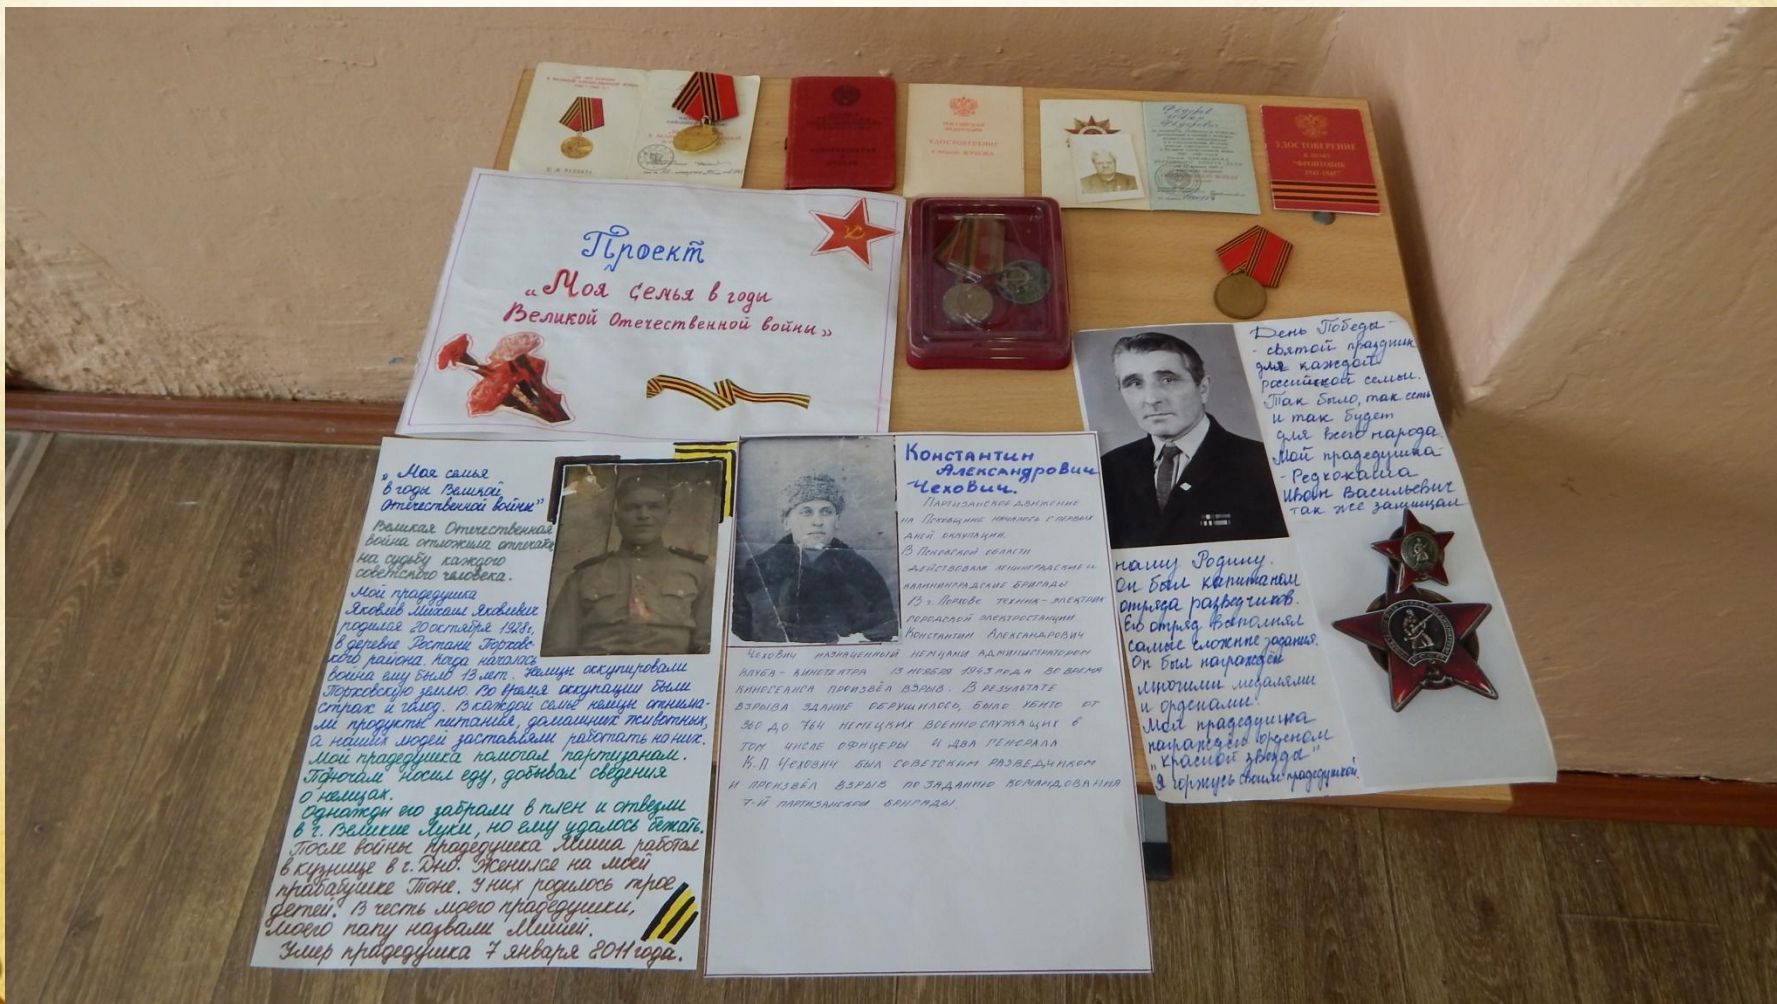 В ВЕЛИКОЙ ОТЕЧЕСТВЕННОЙ ВОЙНЕ
РОССИЙСКАЯ
ФЕДЕРАЦИЯ
УДОСТОВЕРЕНИЕ
Федоров
Федорович
УДОСТОВЕРЕНИЕ
К ЗНАКУ
"ФРОНТОВИК
1941-1945"
Проект
„Моя семья в годы
Великой Отечественной войны»
„Моя семья
в годы Великой
Отечественной войны"
Великая Отечественная
война отложила отпечаток
на судьбу каждого
советского человека.
Мой прадедушка
Яковлев Михаил Яковлевич
родился 20 октября 1928г.
в деревне Ростани Порховс-
кого района. Когда началась
война ему было 13 лет. Немцы оккупировали
Порховскую землю. Во время оккупации были
страх и голод. В каждой семье немцы отнима-
ли продукты питания, домашних животных,
а наших людей заставляли работать на них.
Мой прадедушка помогал партизанам.
По ночам носил еду, добывал сведения
о немцах.
Однажды его забрали в плен и отвезли
в г. Великие Луки, но ему удалось бежать.
После войны прадедушка Миша работал
в кузнице в г. Дно. Женился на моей
прабабушке Тоне. У них родилось трое
детей. В честь моего прадедушки,
моего папу назвали Мишей.
Умер прадедушка 7 января 2011 года.
Константин
Александрович
Чехович.
Партизанское движение
на Псковщине началось с первых
дней оккупации.
В Псковской области
действовали ленинградские и
калининградские бригады
В г. Порхове техник-электрик
городской электростанции
Константин Александрович
Чехович назначенный немцами администратором
клуба-кинотеатра 13 ноября 1943 года во время
киносеанса произвёл взрыв. В результате
взрыва здание обрушилось, было убито от
360 до 764 немецких военнослужащих в
том числе офицеры и два генерала
К.А Чехович был советским разведчиком
и произвёл взрыв по заданию командования
7-й партизанской бригады.
День Победы-
-святой праздник
для каждой
российской семьи.
Так было, так есть
и так будет
для всего народа.
Мой прадедушка
-Редкокаша
Иван Васильевич
так же защищал
нашу Родину.
Он был капитаном
отряда разведчиков.
Его отряд выполнял
самые сложные задания.
Он был награждён
многими медалями
и орденами.
Мой прадедушка
награждён орденом
„Красной звезды"
Я горжусь своим прадедушкой.